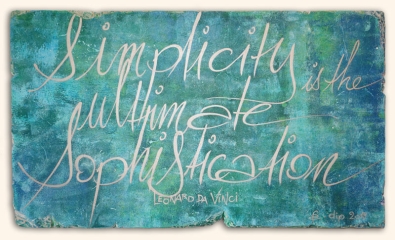 Simplicity is the
ultimate
Sophistication
LEONARDO DA VINCI